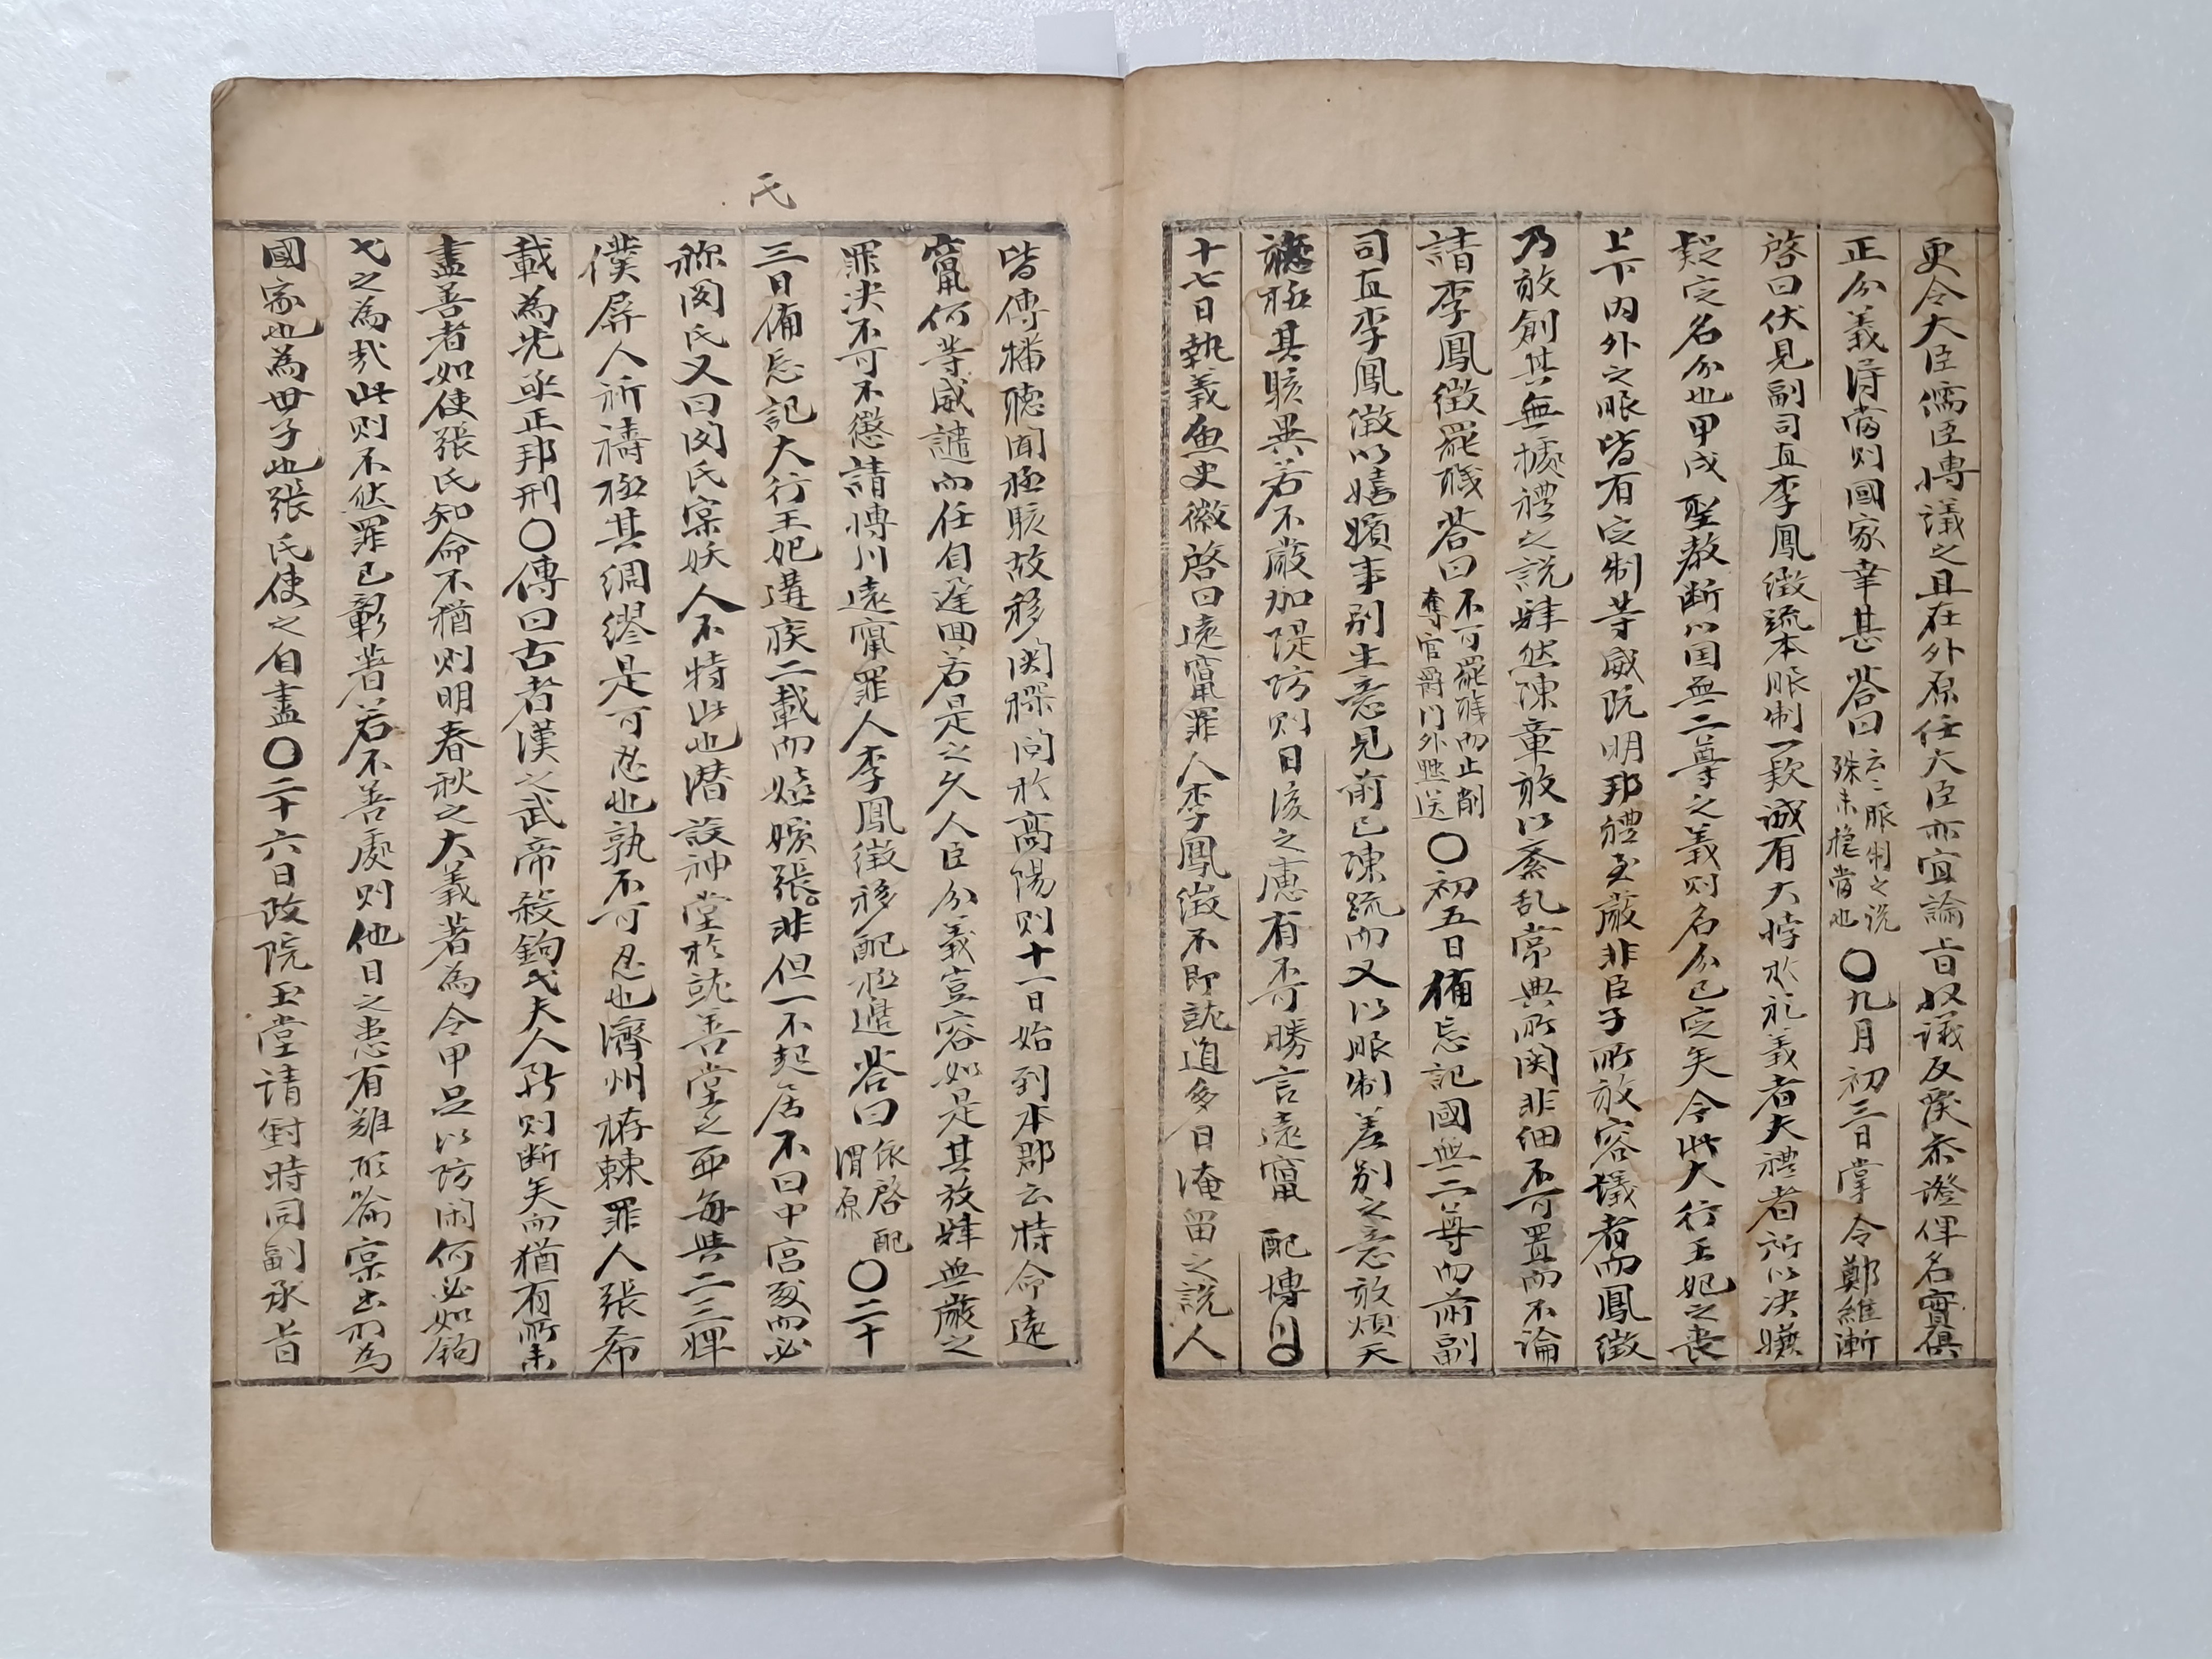 更令大臣儒臣博議之且在外原任大臣亦宜論旨收議反覆叅證俾名實俱
正分義得當則國家幸甚 答曰 云〻服制之說
殊未穩當也 〇九月初三日掌令鄭維漸
啓曰伏見副司直李鳳徵疏本服制一款誠有大悖於礼義者夫禮者所以决嫌
疑定名分也甲戌 聖教断以国無二尊之義則名分已定矣今此大行王妃之喪
上下內外之服皆有定制等威旣明邦禮至嚴非臣子所敢容議者而鳳徵
乃敢創其無據禮之說肆然陳章敢以紊乱常典所関非細不可置而不論
請李鳳徵罷職 答曰 不可罷職而止削
奪官爵門外黜送 〇初五日備忘記國無二尊而前副
司直李鳳徵以嬉嬪事別生意見前已陳疏而又以服制差別之意敢煩天
聽極其駭異若不嚴加隄防則日後之慮有不可勝言遠竄 配博川〇
十七日執義魚史徽啓曰遠竄罪人李鳳徵不卽就道多日淹留之說人
皆傳播聽聞極駭故移関探問於高陽則十一日始到本郡云特命遠
竄何等威譴而任自遲回若是之久人臣分義豈容如是其放肆無嚴之
罪决不可不懲請博川遠竄罪人李鳳徵移配極邊 答曰 依啓 配
渭原 〇二十
三日備忘記大行王妃遘疾二載而嬉嬪張。非但一不起居不曰中宮殿而必
称閔氏又曰閔氏宲妖人不特此也潛設神堂於就善堂之西每與二三婢
僕屏人祈禱極其綢繆是可忍也孰不可忍也濟州栫棘罪人張希
載為先亟正邦刑〇傳曰古者漢之武帝殺鉤弋夫人断則断矣而猶有所未
盡善者如使張氏知命不猶則明春秋之大義著為令甲足以防闲何必如鉤
弋之為哉此則不然罪已彰著若不善處則他日之患有難形喻宲出於為
國家也為世子也張氏使之自盡〇二十六日政院玉堂请對時同副承旨
氏